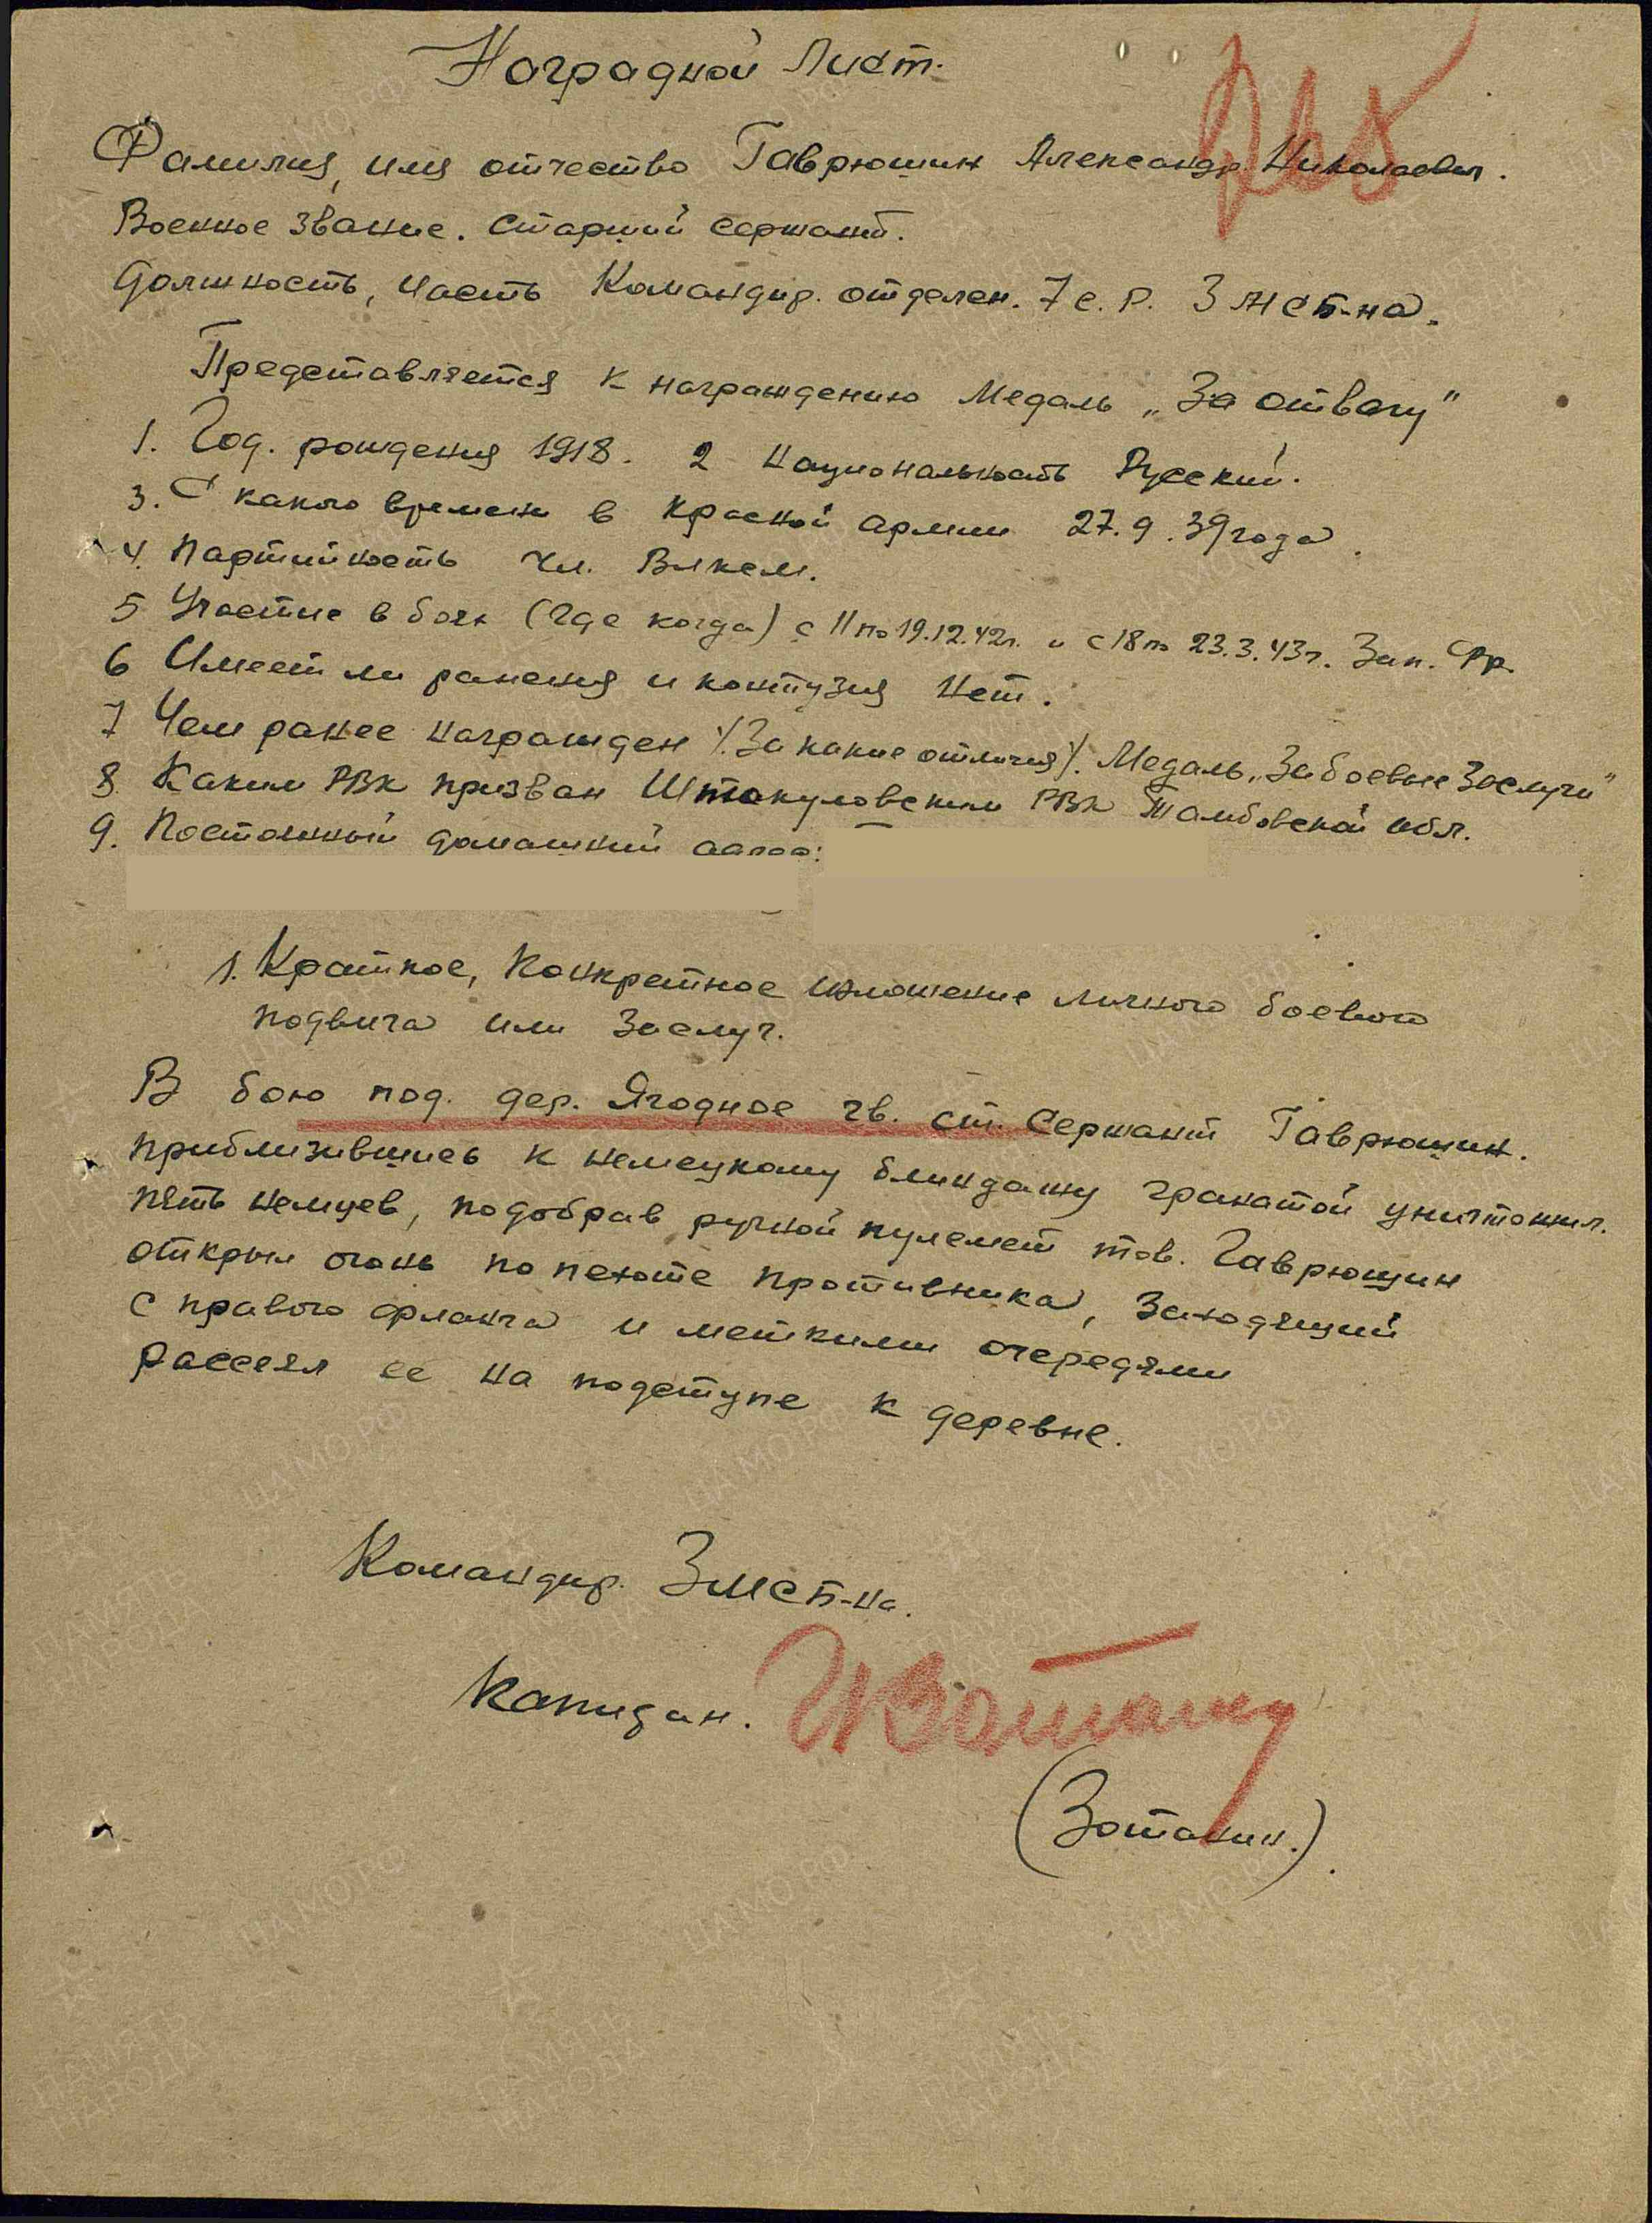 Наградной Лист.
Фамилия, имя отчество Гаврюшин Александр Николаевич.
Военное звание. Старший сержант.
Должность, часть Командир. отделен. 7 с. р. 3 мсб-на.
Представляется к награждению Медаль „За отвагу"
1. Год. рождения 1918. 2 Национальность Русский.
3. С какого времени в Красной армии 27.9.39 года.
4. Партийность Чл. Влксм.
5 Участие в боях (где когда) с 11 по 19.12.42г. и с 18 по 23.3.43г. Зап. Фр.
6 Имеет ли ранения и контузия Нет.
7 Чем ранее награжден /За какие отличия/. Медаль „За боевые Заслуги"
8 Каким РВК призван РВК Тамбовской обл.
9. Постоянный домашний адрес:
1. Краткое, Конкретное изложение личного боевого
подвига или Заслуг.
В бою под. дер. Ягодное гв. ст. Сержант Гаврюшин.
приблизившись к немецкому блиндажу гранатой уничтожил.
пять немцев, подобрав ручной пулемет тов. Гаврюшин
открыл огонь по пехоте противника, Заходящий
с правого фланга и меткими очередями
рассеял ее на подступе к деревне.
Командир. 3 мсб-на.
Капитан.
(Зотакин.)
ЦАМО РФ
ПАМЯТЬ НАРОДА